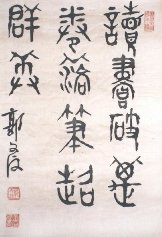 讀書破萬
卷落筆超
群英
郭